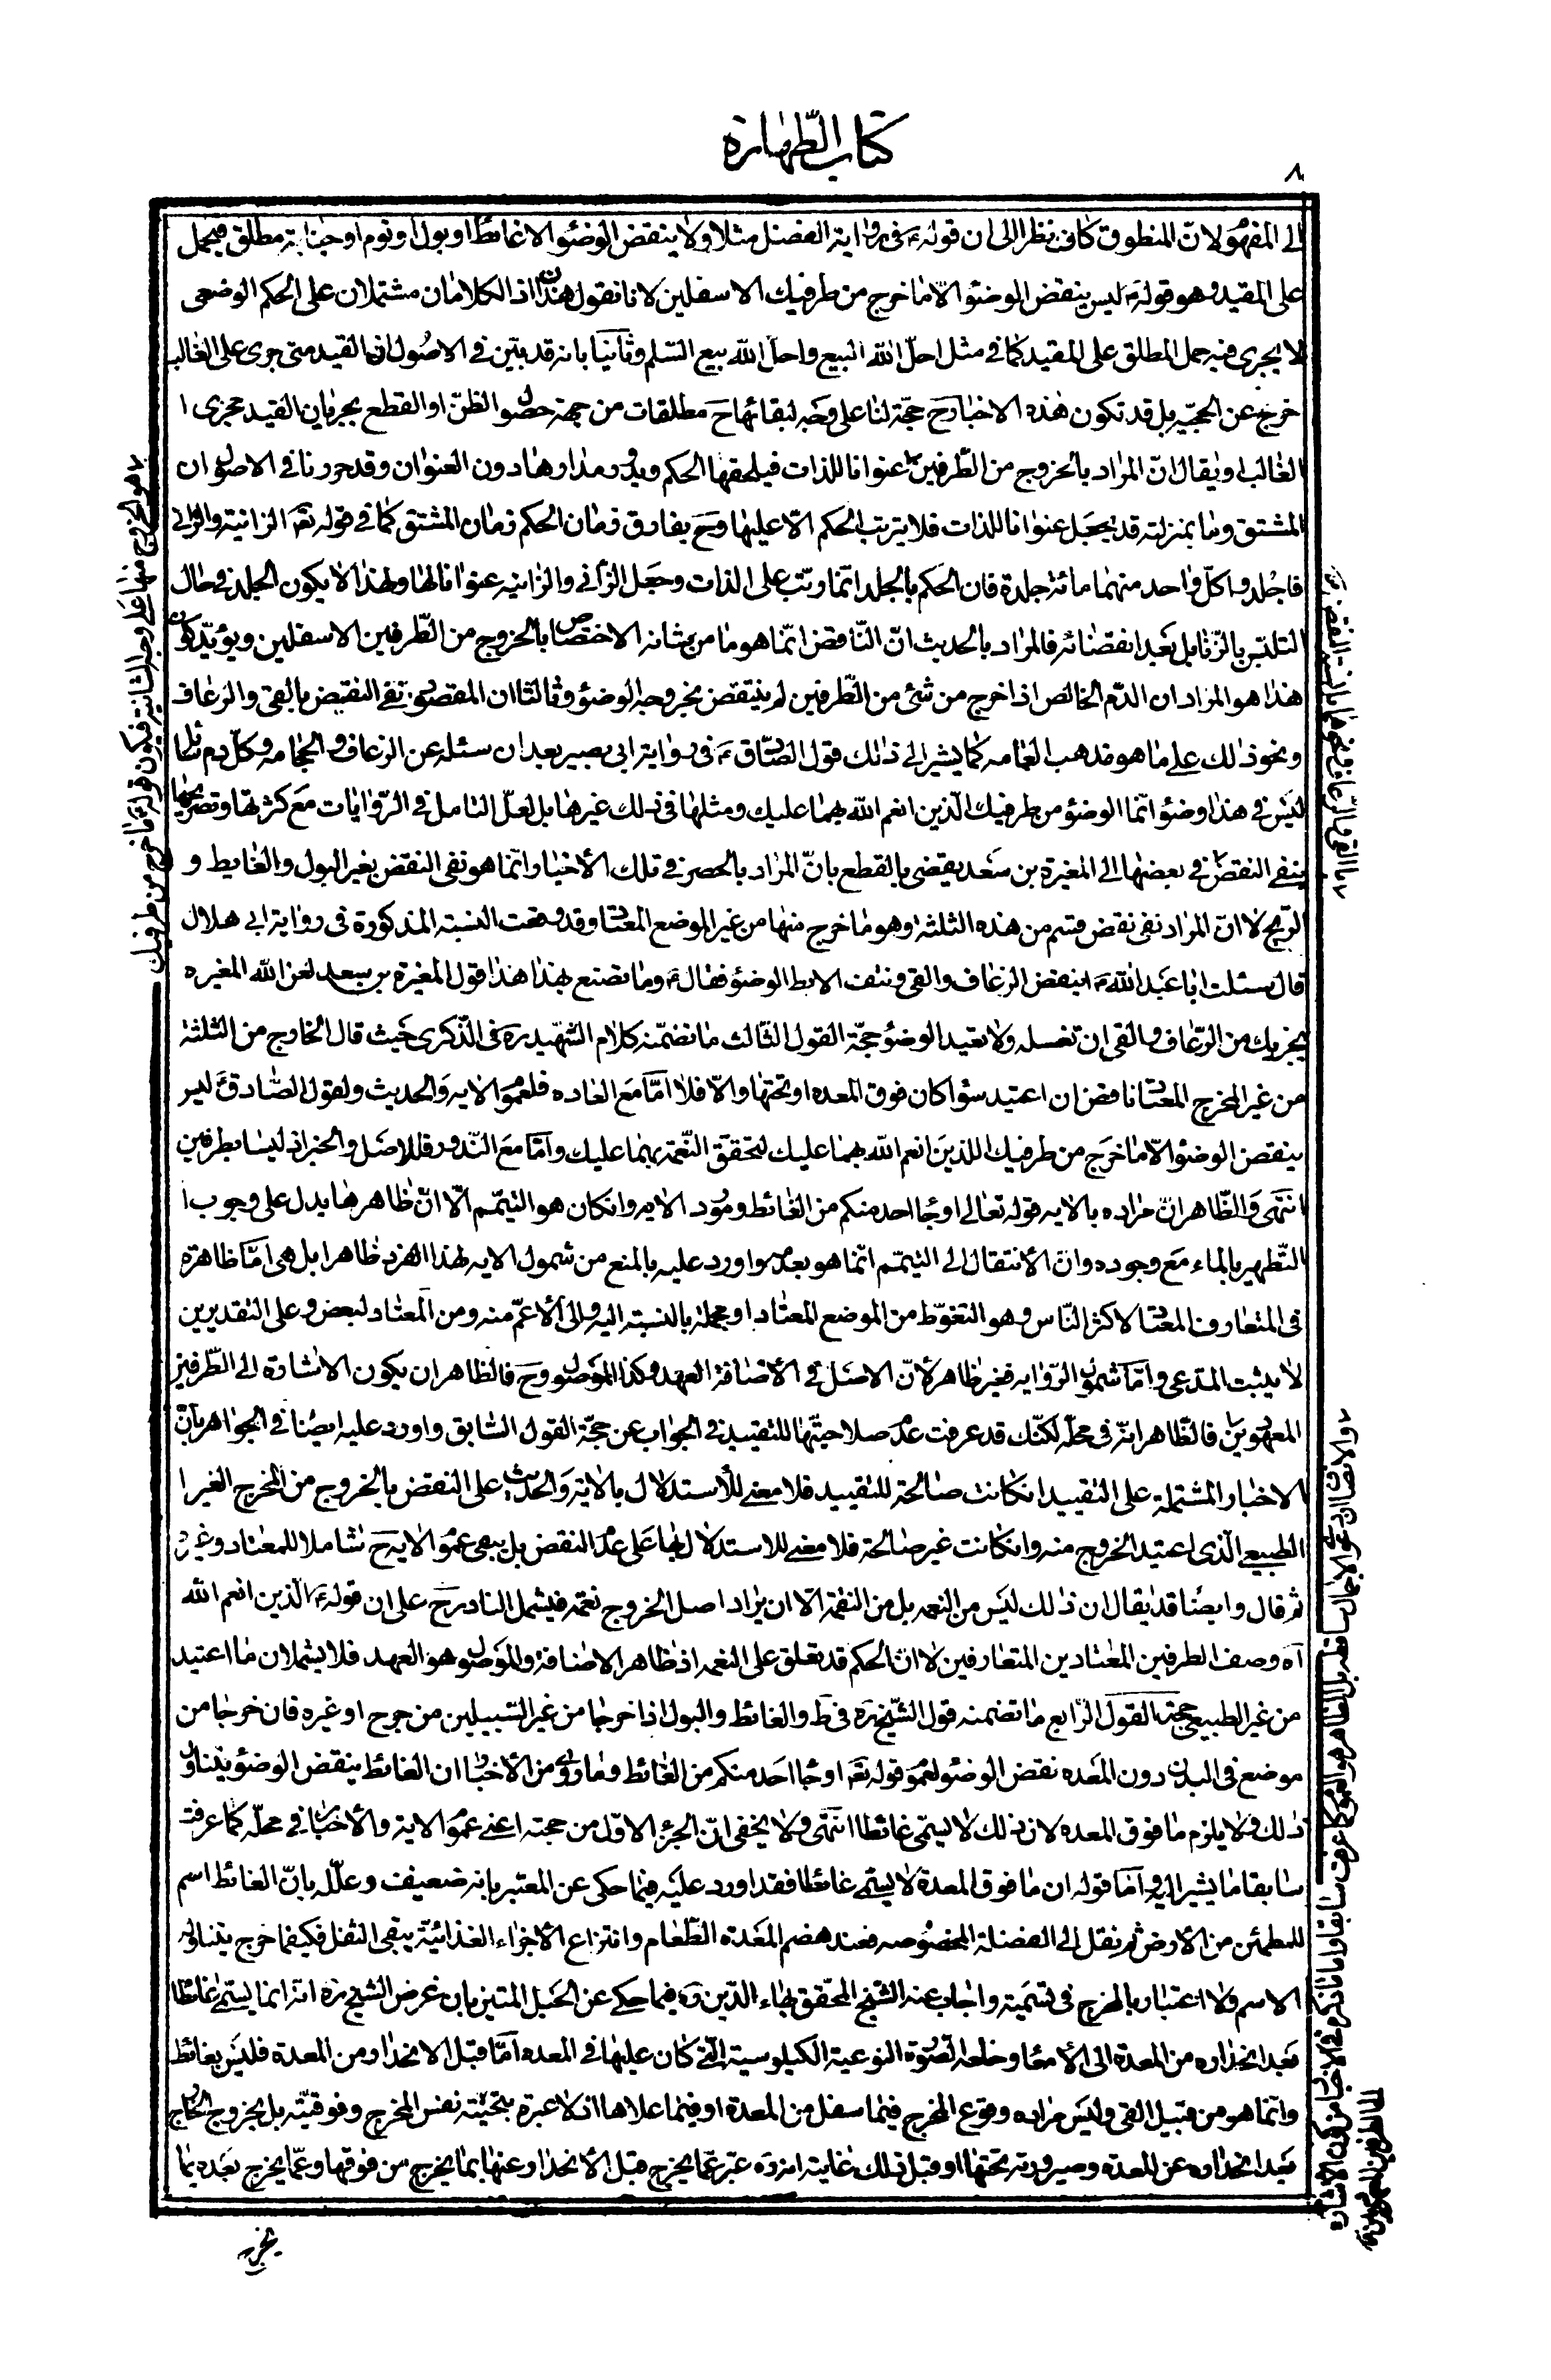 كتاب الطّهارة
٨
الى المفهوم لانّ المنطوق كاف نظرا الى ان قوله ع في رواية الفضل مثلا ولا ينقض الوضوء الا غائط او بول او نوم او جنابة مطلق فيحمل
على المقيد وهو قوله ع ليس ينقض الوضوء الّا ما خرج من طرفيك الاسفلين لانا نقول هذان الكلامان مشتملان على الحكم الوضعى
لا يجرى فيه حمل المطلق على المقيد كما في مثل احلّ اللّه البيع واحل اللّه بيع السّلم وثانيا بانه قد بيّن في الاصول ان القيد متى جرى على الغالب
خرج عن الحجيّة بل قد تكون هذه الاخبار ح حجّة لنا على وجه لبقائها ح مطلقات من جهة حصول الظنّ او القطع بجريان القيد مجرى ا
الغالب او يقال انّ المراد بالخروج من الطّرفين عنوانا للذات فيلحقها الحكم ويدور مدارها دون العنوان وقد حررنا في الاصول ان
المشتق وما بمنزلته قد يجعل عنوانا للذات فلا يترتب الحكم الّا عليها وح يفارق زمان الحكم زمان المشتق كما في قوله تعَ الزانية والزّاني
فاجلدوا كلّ واحد منهما مائة جلدة فان الحكم بالجلد انّما رتّب على الذات وجعل الزّاني والزانيه عنوانا لها ولهذا لا يكون الجلد في حال
التلبّس بالزّنا بل بعد انقضائه فالمراد بالحديث انّ النّاقض انّما هو ما من شانه الاختصاص بالخروج من الطّرفين الاسفلين ويؤيّد كون
هذا هو المراد ان الدّم الخالص اذا خرج من شئ من الطّرفين لم ينتقض بخروجه الوضوء وثالثا ان المقصود نفى النقض بالقى والرعاف
ونحو ذلك على ما هو مذهب العامه كما يشير الى ذلك قول الصّادق ع فى رواية ابى بصير بعد ان سئله عن الرعاف والحجامه وكلّ دم سائل
ليس في هذا وضوء انّما الوضوء من طرفيك الّذين انعم اللّه بهما عليك ومثلها في ذلك غيرها بل لعلّ التامل في الرّوايات مع كثرتها وتصريحها
بنفى النقض في بعضها الى المغيرة بن سعد يقضى بالقطع بانّ المراد بالحصر في تلك الأخبار انّما هو نفى النقض بغير البول والغايط و
الرّيح لا انّ المراد نفى نقض قسم من هذه الثلثة وهو ما خرج منها من غير الموضع المعتاد وقد وقعت النسبة المذكورة فى رواية ابى هلال
قال سئلت ابا عبد اللّه ع اينقض الرعاف والقى ونتف الابط الوضوء فقال ع وما تصنع بهذا هذا قول المغيرة بن سعيد لعن اللّه المغيره
يجزيك من الرّعاف والقى ان تغسله ولا تعيد الوضوء حجّة القول الثّالث ما تضمّنه كلام الشّهيد ره فى الذّكرى حيث قال الخارج من الثلثة
من غير المخرج المعتاد ناقض ان اعتيد سواء كان فوق المعده او تحتها والّا فلا امّا مع العاده فلعموم الايه والحديث ولقول الصّادق ع ليس
ينقض الوضوء الّا ما خرج من طرفيك اللذين انعم اللّه بهما عليك لتحقق النّعمة بهما عليك وامّا مع النّدور فللاصل والخبر اذ ليسا بطرفين
انتهى والظّاهر انّ مراده بالايه قوله تعالى او جاء احد منكم من الغائط ومورد الايه وان كان هو التيمّم الّا انّ ظاهرها يدل على وجوب ا
التّطهير بالماء مع وجوده وانّ الأنتقال الى التيمّم انّما هو بعده واورد عليه بالمنع من شمول الايه لهذا الفرد ظاهرا بل هى امّا ظاهرة
فى المتعارف المعتاد لاكثر النّاس وهو التغوّط من الموضع المعتاد او مجملة بالنسبة اليه والى الأعمّ منه ومن المعتاد لبعض وعلى التقديرين
لا يثبت المدّعى وامّا شمول الرّوايه فغير ظاهر لأنّ الاصل فى الأضافة العهد وكذا الموصول وح فالظاهر ان يكون الاشارة الى الطّرفين
المعهودين فالظّاهر انّه فى محلّه لكنّك قد عرفت عدم صلاحيّتها للتقييد في الجواب عن حجّة القول السّابق واورد عليه ايضا في الجواهر بانّ
الاخبار المشتملة على التقييد ان كانت صالحة للتقييد فلا معنى للأستدلال بالاية والحديث على النقض بالخروج من المخرج الغير ا
الطبيعى الّذى اعتيد الخروج منه وان كانت غير صالحة فلا معنى للاستدلال بها على عدم النقض بل يبقى عموم الايه ح شاملا للمعتاد وغيره
ثم قال وايضا قد يقال ان ذلك ليس من النعمه بل من النقمة الّا ان يراد اصل الخروج نعمة فيشمل النادر ح على ان قوله ع الّذين انعم اللّه
آه وصف الطرفين المعتادين المتعارفين لا انّ الحكم قد تعلق على النعمه اذ ظاهر الاضافة والموصول هو العهد فلا يشملان ما اعتيد
من غير الطبيعى حجّة القول الرّابع ما تضمنه قول الشّيخ ره فى ط والغائط والبول اذا خرجا من غير السّبيلين من جرح او غيره فان خرجا من
موضع فى البدن دون المعده نقض الوضوء لعموم قوله تعَ او جاء احد منكم من الغائط وما روى من الأخبار ان الغائط ينقض الوضوء يتناول
ذلك ولا يلزم ما فوق المعده لان ذلك لا يسمّى غائطا انتهى ولا يخفى انّ الجزء الاوّل من حجته اعنى عموم الاية والأخبار في محلّه كما عرفت
سابقا ما يشير اليه وامّا قوله ان ما فوق المعدة لا يسمّى غائطا فقد اورد عليه فيما حكى عن المعتبر بانه ضعيف وعلّله بانّ الغائط اسم
للمطمئن من الأرض ثم نقل الى الفضلة المخصوصه فعند هضم المعدة الطّعام وانتزاع الأجزاء الغذائيّة يبقى الثفل فكيفما خرج يتناوله
الاسم ولا اعتبار بالمخرج فى تسميته واجاب عنه الشّيخ المحقّق بهاء الدّين ره فيما حكى عن الحبل المتين بان غرض الشيخ ره انّه انما يسمّى غائطا
بعد انحداره من المعدة الى الأمعاء وخلعه الصّورة النوعية الكيلوسية الّتى كان عليها فى المعده امّا قبل الانحدار من المعدة فليس بغائط
وانّما هو من قبيل القى وليس مراده وقوع المخرج فيما سفل من المعدة او فيما علاها اذ لا عبرة بتحتيّته نفس المخرج وفوقيّته بل بخروج الخارج
بعد انحداره عن المعده وصيرورته تحتها او قبل ذلك غاية امره انه عبّر عمّا يخرج قبل الأنحدار عنها بما يخرج من فوقها وعمّا يخرج بعده بما
يخرج
هو الخروج منها على وجه الشانية فيكون قوله ع ما خرج من طرفيك